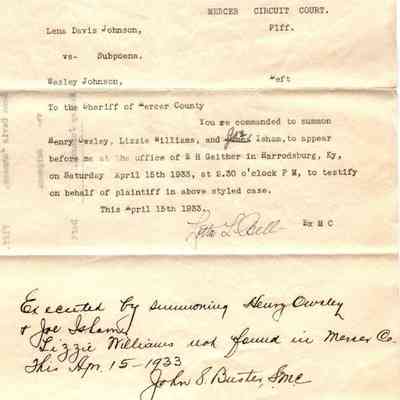 MERCER CIRCUIT COURT.
Lena Davis Johnson, Plff.
vs- Subpoena.
Wesley Johnson, Deft
To the Sheriff of Mercer County
You are commanded to summon
Henry Owsley, Lizzie Williams, and Joe Isham, to appear
before me at the office of E H Gaither in Harrodsburg, Ky,
on Saturday April 15th 1933, at 2.30 o'clock P M, to testify
on behalf of plaintiff in above styled case.
This April 15th 1933.
L. Bell Ex M C
Executed by summoning Henry Owsley
& Joe Isham
Lizzie Williams not found in Mercer Co.
This Apr. 15-1933.
John S. Buster, S.M.C.